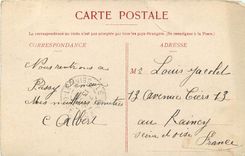 CARTE POSTALE
La correspondance au recto n'est pas acceptée par tous les pays étrangers. (Se renseigner à la Poste).
CORRESPONDANCE
ADRESSE
Nous rentrons a
Passy
Nos meilleures amitiés
C Albert
Mr Louis
13 avenue
au Raincy
Seine et Oise
France